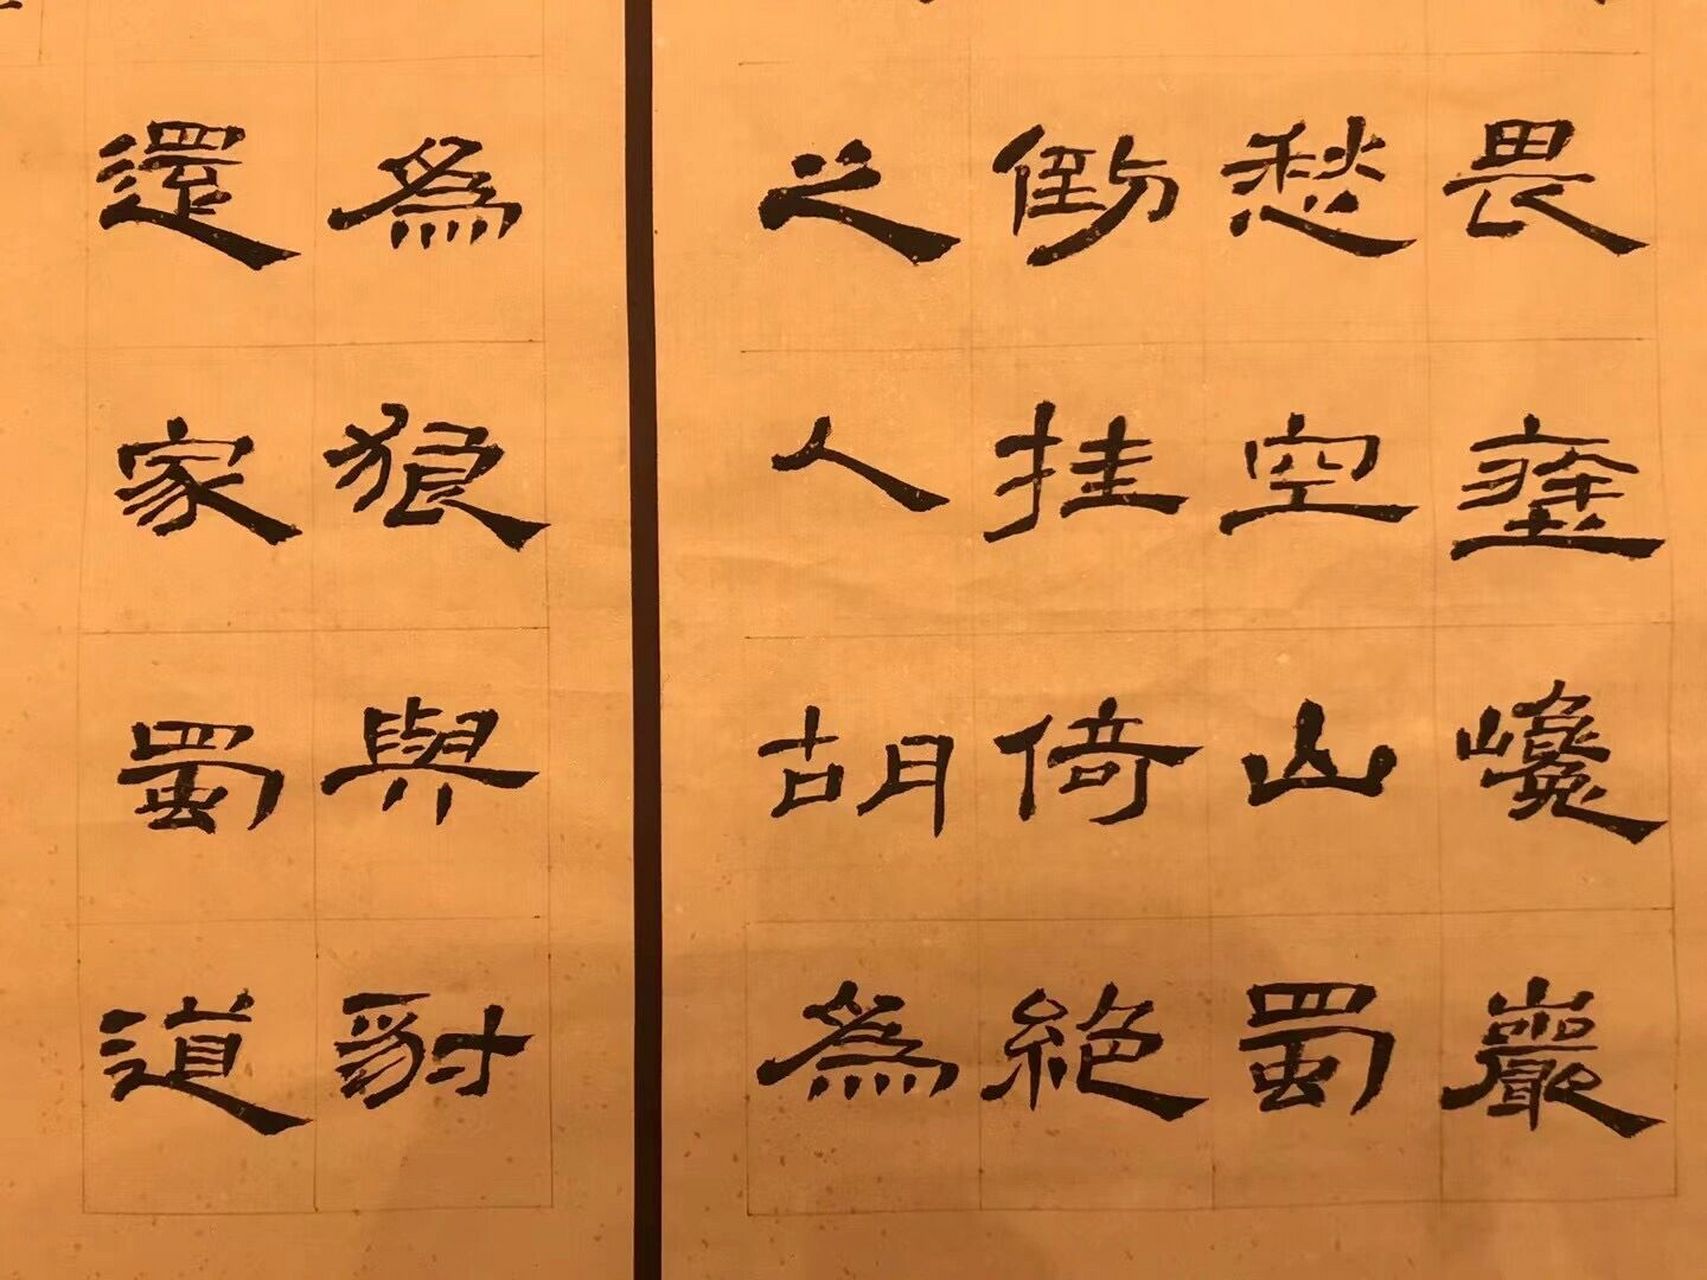 畏塗巉巖
愁空山蜀
倒挂倚絕
之人胡為
為狼與豺
還家蜀道